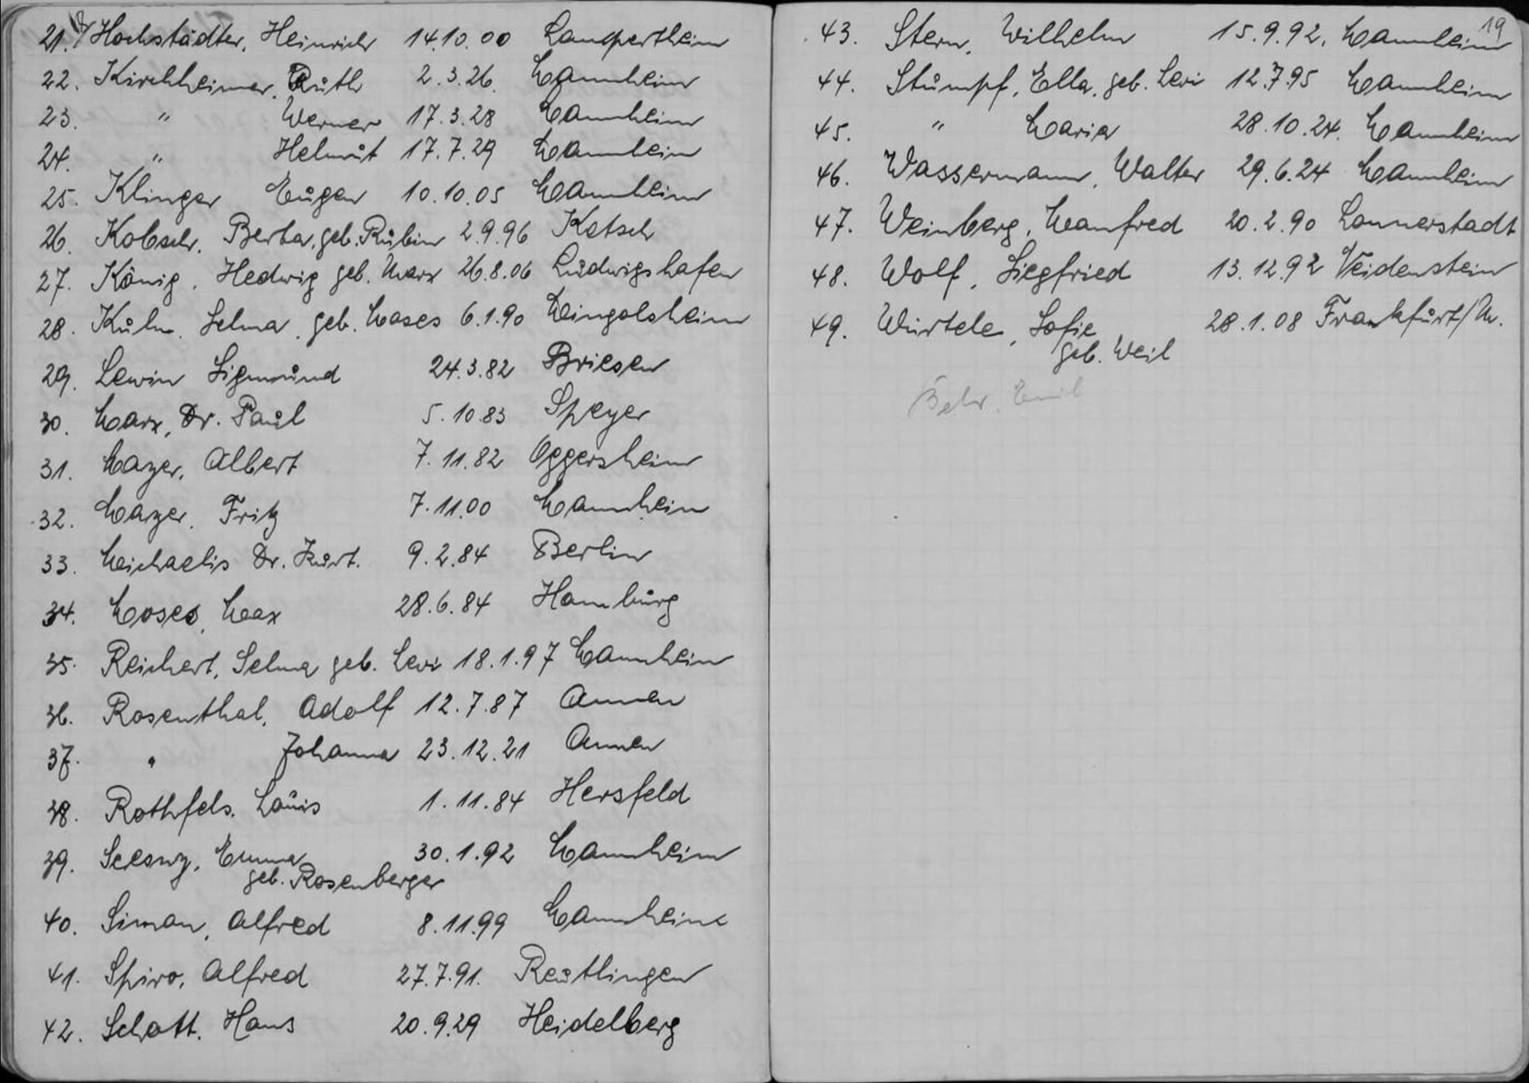 21. Hochstädter, Heinrich 14.10.00 Lampertheim
22. Kirchheimer, Ruth 2.3.26. Mannheim
23. " Werner 17.3.28 Mannheim
24. " Helmut 17.7.29 Mannheim
25. Klinger Eugen 10.10.05 Mannheim
26. Kobsch, Berta, geb. Rubin 2.9.96 Ketsch
27. König, Hedwig geb. Marx 26.8.06 Ludwigshafen
28. Kuhn, Selma, geb. Moses 6.1.90 Mingolsheim
29. Lewin Sigmund 24.3.82 Briesen
30. Marx, Dr. Paul 5.10.83 Speyer
31. Mayer, Albert 7.11.82 Oggersheim
32. Mayer, Fritz 7.11.00 Mannheim
33. Michaelis Dr. Kurt. 9.2.84 Berlin
34. Moses, Max 28.6.84 Hamburg
35. Reichert, Selma geb. Levi 18.1.97 Mannheim
36. Rosenthal, Adolf 12.7.87 Annen
37. " Johanna 23.12.21 Annen
38. Rothfels, Louis 1.11.84 Hersfeld
39. Emma 30.1.92 Mannheim
geb. Rosenberger
40. Simon, Alfred 8.11.99 Mannheim
41. Spiro, Alfred 27.7.91. Reutlingen
42. Schott, Hans 20.9.29 Heidelberg
19
43. Stern, Wilhelm 15.9.92. Mannheim
44. Stumpf, Ella, geb. Levi 12.7.95 Mannheim
45. " Maria 28.10.24. Mannheim
46. Wassermann, Walter 29.6.24 Mannheim
47. Weinberg, Manfred 20.2.90 Lonnerstadt
48. Wolf, Siegfried 13.12.92 Weidenstein
49. Würtele, Sofie 28.1.08 Frankfurt/M.
geb. Weil
Behr, Emil